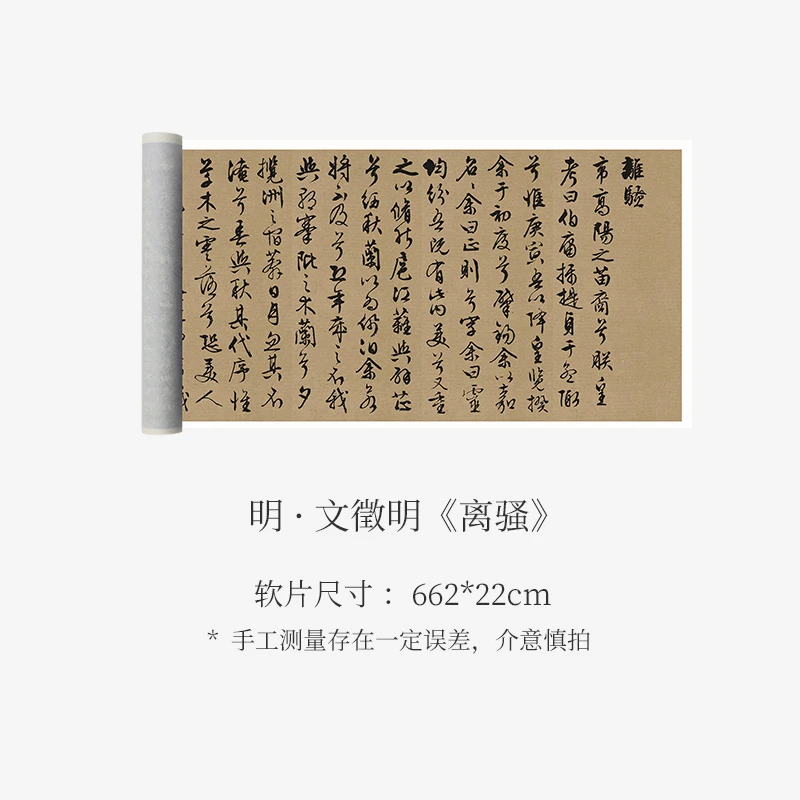 離騷
帝高陽之苗裔兮朕皇
考曰伯庸攝提貞于孟陬
兮惟庚寅吾以降皇覽揆
余于初度兮肇錫余以嘉
名名余曰正則兮字余曰靈
均紛吾既有此内美兮又重
之以脩能扈江蘺與辟芷
兮紉秋蘭以為佩汩余若
將不及兮恐年歲之不我
與朝搴阰之木蘭兮夕
攬洲之宿莽日月忽其不
淹兮春與秋其代序惟
草木之零落兮恐美人
明·文徵明《离骚》
软片尺寸：662*22cm
* 手工测量存在一定误差，介意慎拍